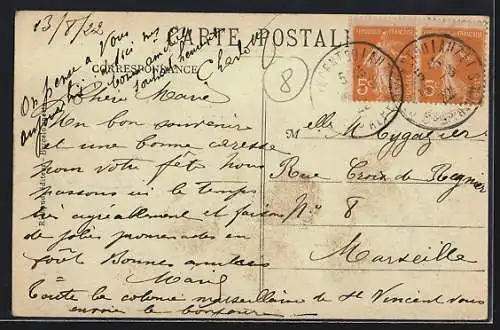 13/8/22
CARTE POSTALE
CORRESPONDANCE
On pense a vous
ici
bonne amitié
8
Chère Marie
Un bon souvenir
et une bonne caresse
pour votre fête. Nous
passons ici le temps
très agréablement et faisons
de jolies promenades en
forêt Bonnes amitiés
Marie
Toute la colonie marseillaise de St Vincent vous
envoie le bonjour
RÉPUBLIQUE FRANÇAISE
5c
5c
Melle M.
Rue Croix de Regnier
N° 8
Marseille